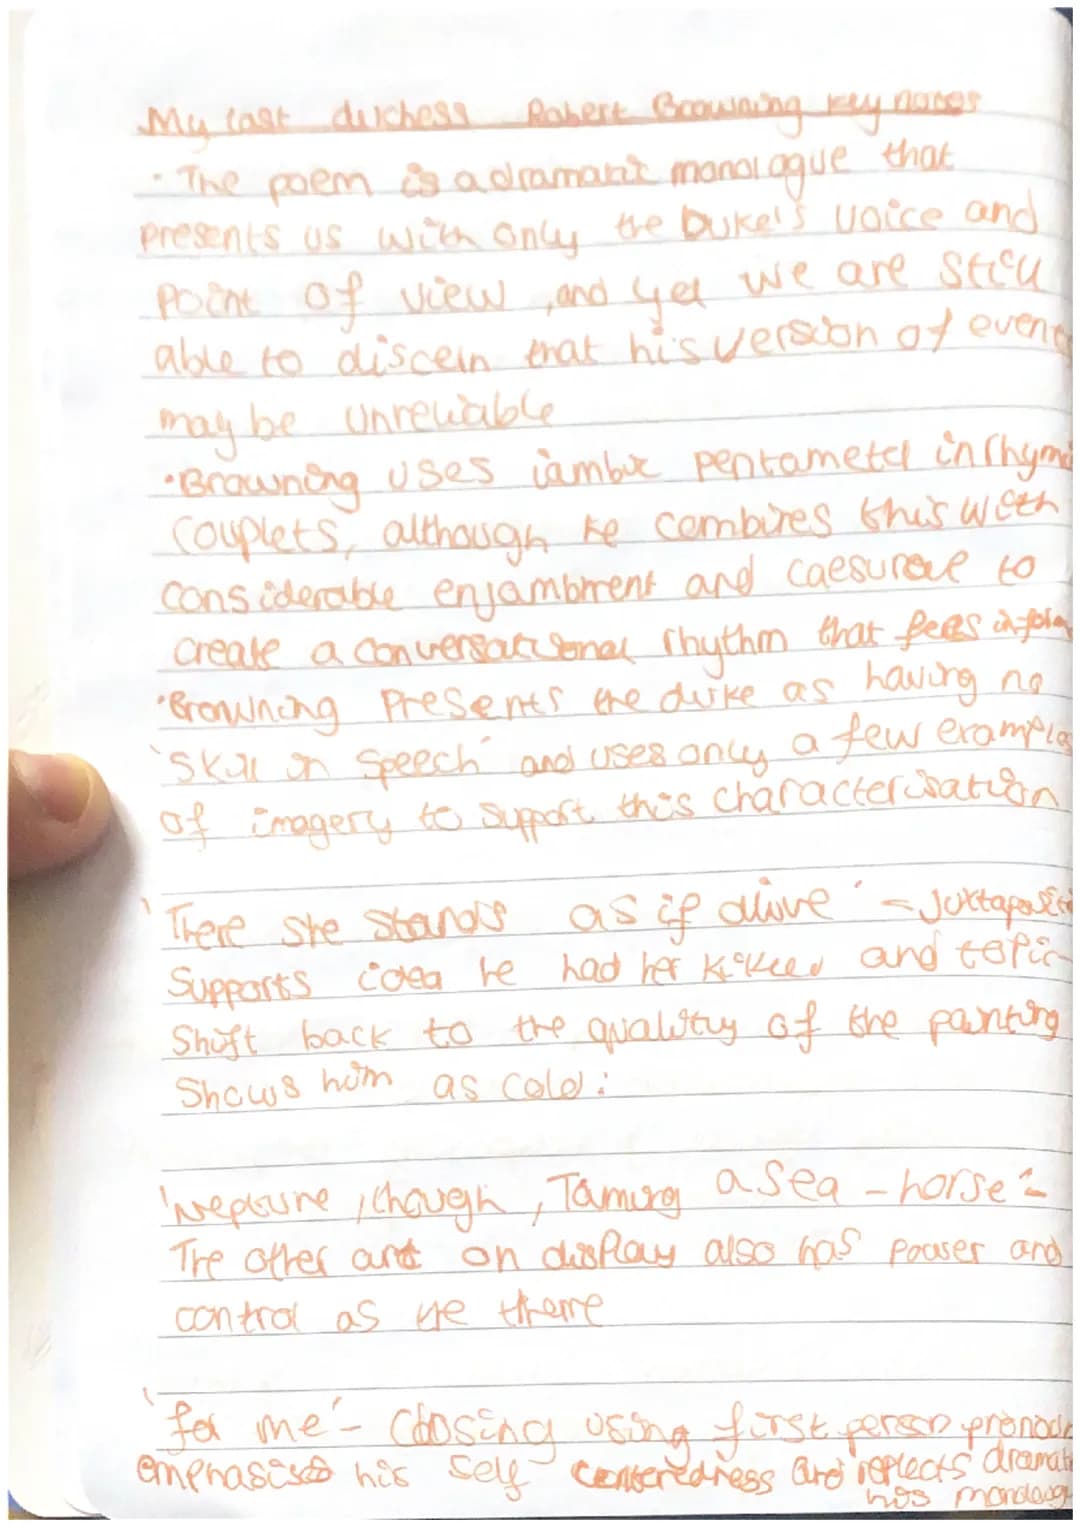 My last duchess Robert Browning key notes
• The poem is a dramatic monologue that
presents us with only the Duke's voice and
point of view, and yet we are still
able to discern that his version of events
may be unreliable
• Browning uses iambic pentameter in rhyming
couplets, although he combines this with
considerable enjambment and caesurae to
create a conversational rhythm that feels
• Browning presents the duke as having no
'skill in speech' and uses only a few examples
of imagery to support this characterisation
'There she stands as if alive' - Juxtaposition
Supports idea he had her killed and topic
Shift back to the quality of the painting
Shows him as cold.
'Neptune, though, Taming a sea-horse'
The other art on display also has power and
control as the theme
'for me' - Closing using first person pronoun
emphasises his self centeredness and reflects dramatic
monologue